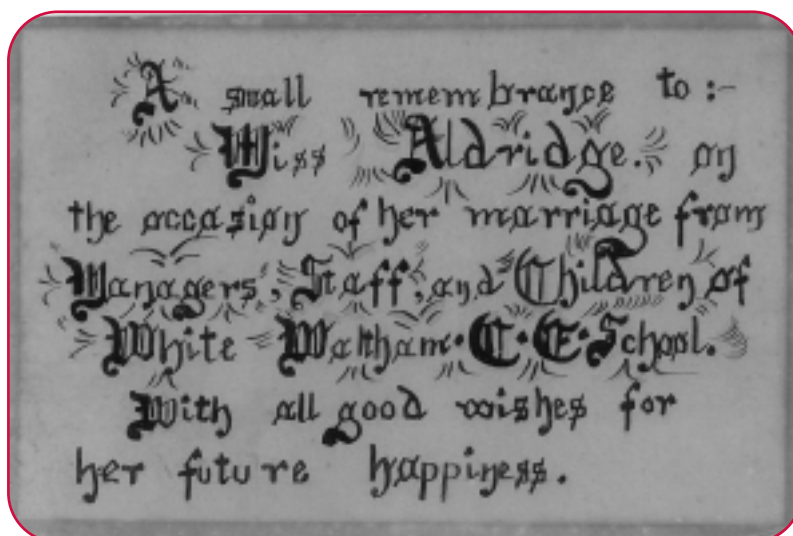 A small remembrance to :-
Miss Aldridge. on
the occasion of her marriage from
Managers, Staff, and Children of
White Waltham. C. E. School.
With all good wishes for
her future happiness.